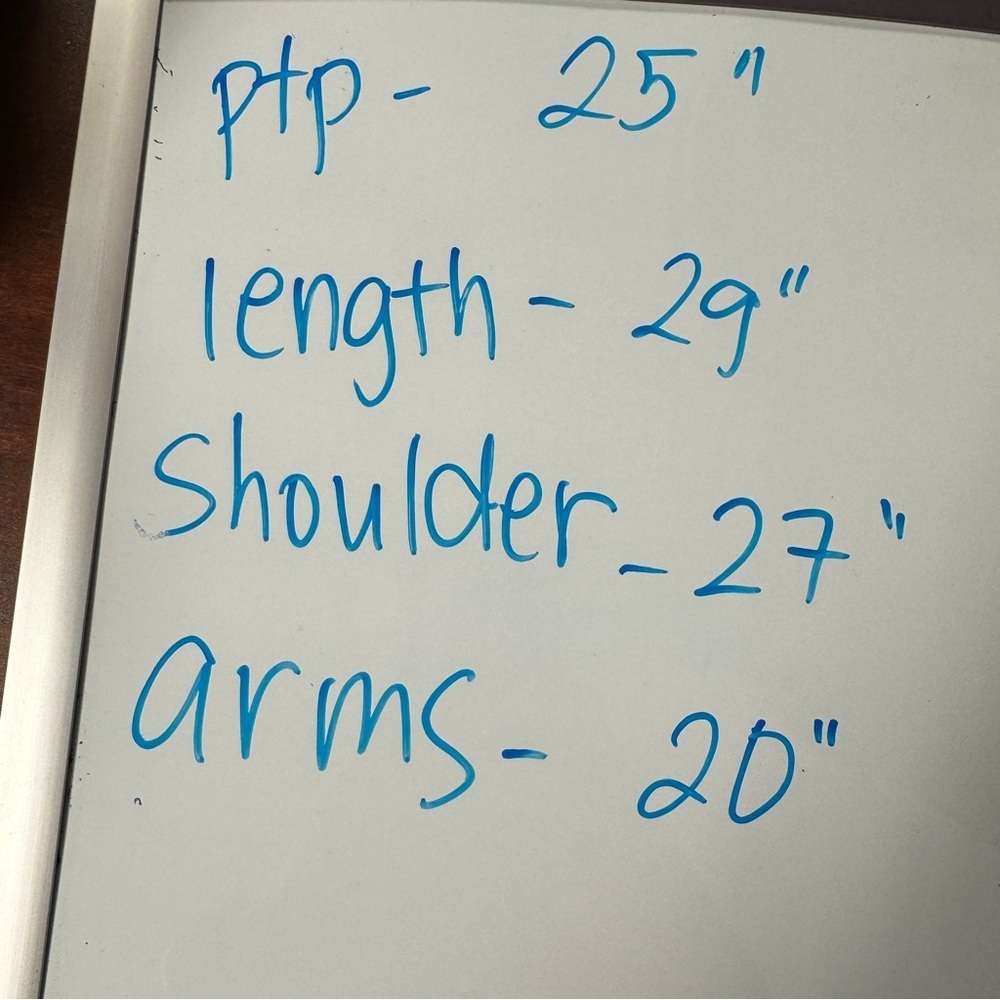 ptp - 25"
length - 29"
shoulder - 27"
arms - 20"